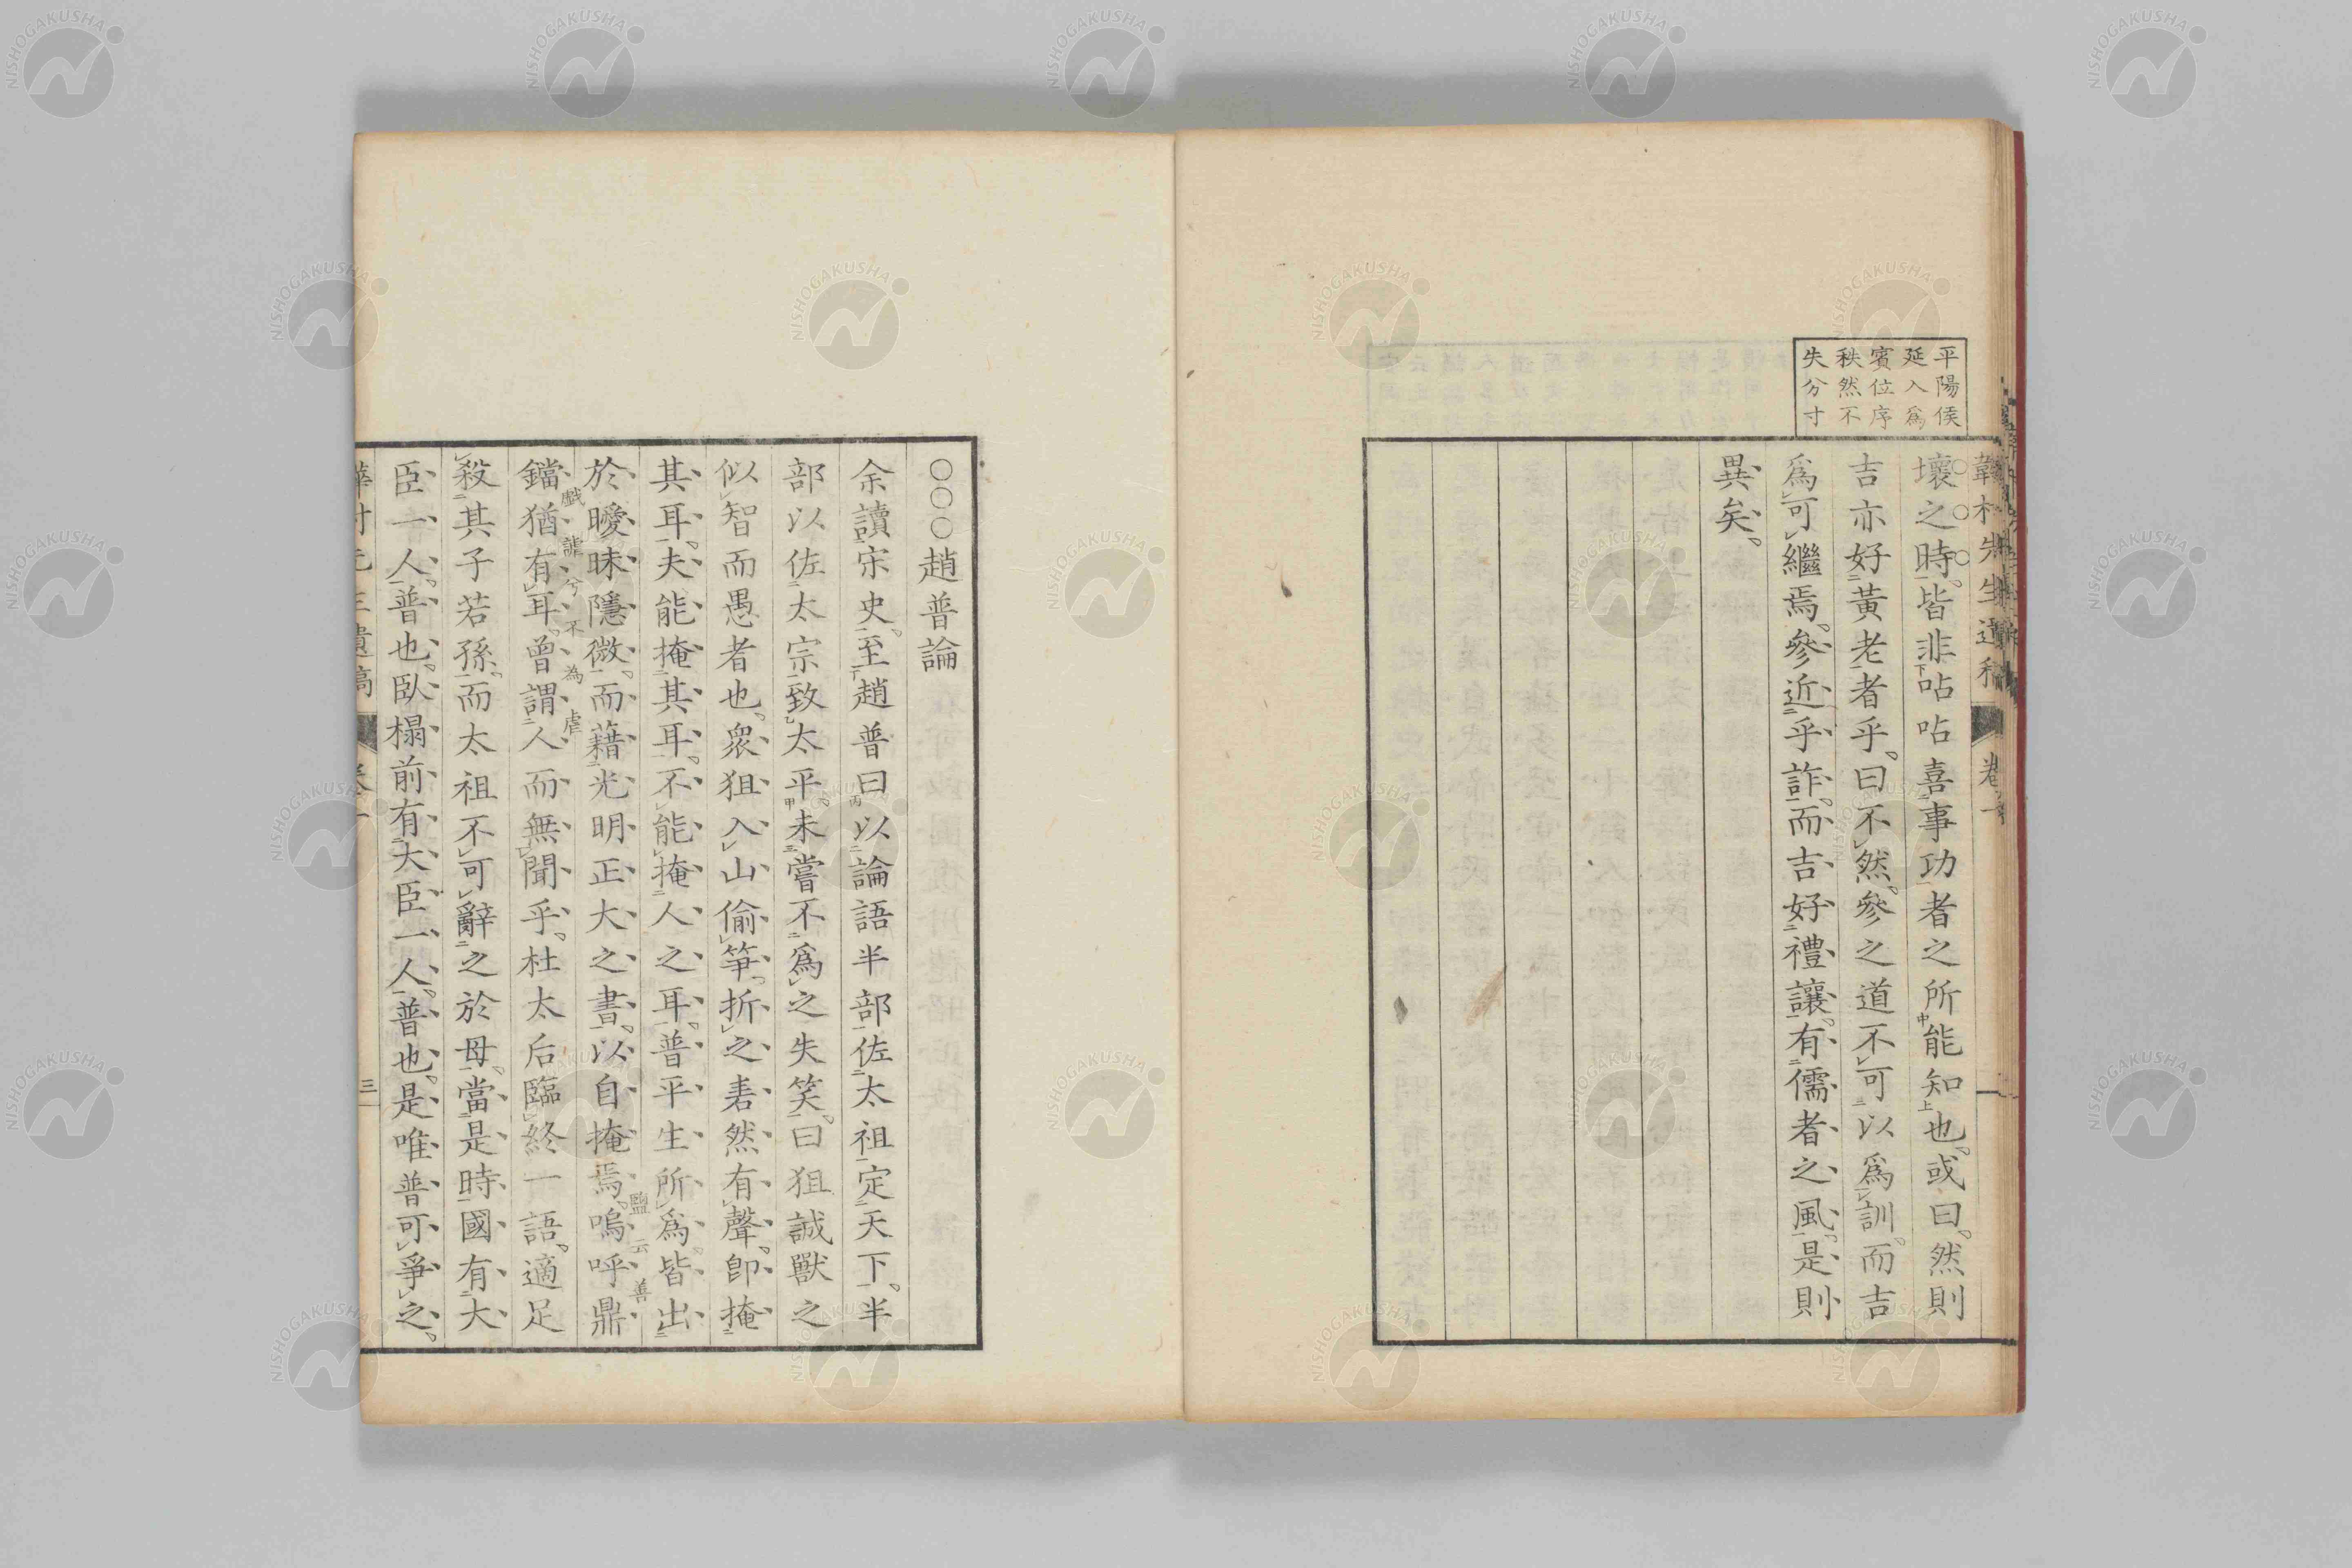 平陽侯
延入爲
賓位序
秩然不
失分寸
壞之時。皆非呫呫喜事功者之所能知也。或曰。然則
吉亦好黃老者乎。曰不然。參之道不可以爲訓。而吉
爲可繼焉。參近乎詐。而吉好禮讓。有儒者之風。是則
異矣。
卷一
〇〇〇趙普論
余讀宋史。至趙普曰以論語半部佐太祖定天下。半
部以佐太宗致太平。未嘗不爲之失笑。曰狙誠獸之
似智而愚者也。衆狙入山偷筍。折之砉然有聲。卽掩
其耳。夫能掩其耳。不能掩人之耳。普平生所爲皆出
於曖昧隱微。而藉光明正大之書。以自掩焉。嗚呼鼎
鐺猶有耳。曾謂人而無聞乎。杜太后臨終一語。適足
殺其子若孫。而太祖不可辭之於母。當是時國有大
臣一人。普也。臥榻前有大臣一人。普也。是唯普可爭之。
戲謔兮不為虐
云善
三
NISHOGAKUSHA